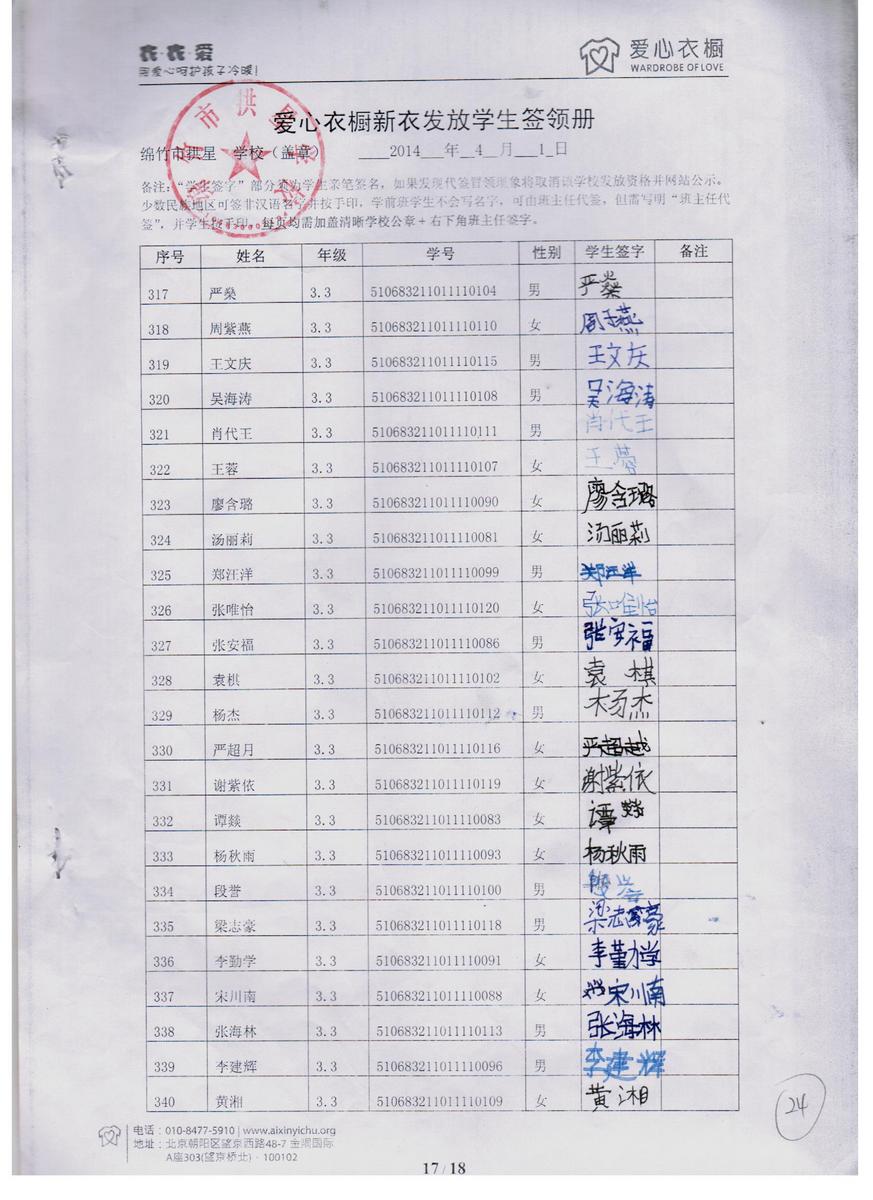 衣·衣·爱
用爱心呵护孩子冷暖!
爱心衣橱
WARDROBE OF LOVE
爱心衣橱新衣发放学生签领册
绵竹市拱星 学校（盖章） 2014 年 4 月 1 日
备注：“学生签字”部分须为学生亲笔签名，如果发现代签冒领现象将取消该学校发放资格并网站公示。
少数民族地区可签非汉语名字并按手印，学前班学生不会写名字，可由班主任代签，但需写明“班主任代
签”，并学生按手印。每页均需加盖清晰学校公章+右下角班主任签字。
序号 姓名 年级 学号 性别 学生签字 备注
317 严燊 3.3 510683211011110104 男 严燊
318 周紫燕 3.3 510683211011110110 女 周子燕
319 王文庆 3.3 510683211011110115 男 王文庆
320 吴海涛 3.3 510683211011110108 男 吴海涛
321 肖代王 3.3 510683211011110111 男 肖代王
322 王蓉 3.3 510683211011110107 女 王蓉
323 廖含璐 3.3 510683211011110090 女 廖含璐
324 汤丽莉 3.3 510683211011110081 女 汤丽莉
325 郑汪洋 3.3 510683211011110099 男 郑汪洋
326 张唯怡 3.3 510683211011110120 女 张唯怡
327 张安福 3.3 510683211011110086 男 张安福
328 袁棋 3.3 510683211011110102 女 袁棋
329 杨杰 3.3 510683211011110112 男 杨杰
330 严超月 3.3 510683211011110116 女 严超越
331 谢紫依 3.3 510683211011110119 女 谢紫依
332 谭燚 3.3 510683211011110083 女 谭燚
333 杨秋雨 3.3 510683211011110093 女 杨秋雨
334 段誉 3.3 510683211011110100 男 段誉
335 梁志豪 3.3 510683211011110118 男 梁志豪
336 李勤学 3.3 510683211011110091 女 李勤学
337 宋川南 3.3 510683211011110088 女 宋川南
338 张海林 3.3 510683211011110113 男 张海林
339 李建辉 3.3 510683211011110096 男 李建辉
340 黄湘 3.3 510683211011110109 女 黄湘
24
电话：010-8477-5910 | www.aixinyichu.org
地址：北京朝阳区望京西路48-7 金澜国际
A座303(望京桥北)·100102
17 / 18